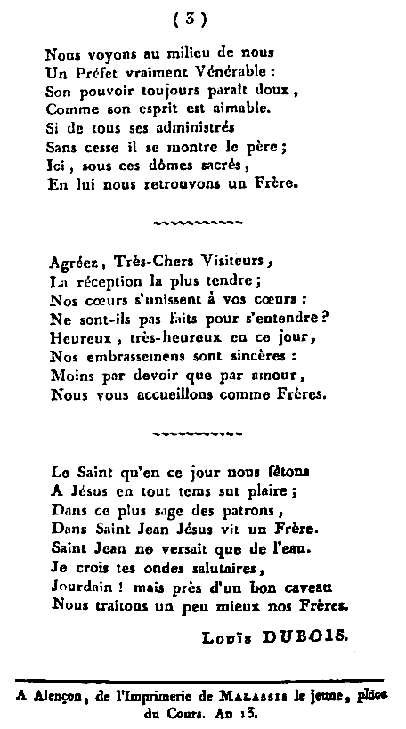 ( 3 )
Nous voyons au milieu de nous
Un Préfet vraiment Vénérable :
Son pouvoir toujours paraît doux ,
Comme son esprit est aimable.
Si de tous ses administrés
Sans cesse il se montre le père ;
Ici , sous ces dômes sacrés ,
En lui nous retrouvons un Frère.
Agréez, Très-Chers Visiteurs ,
La réception la plus tendre ;
Nos cœurs s'unissent à vos cœurs :
Ne sont-ils pas faits pour s'entendre ?
Heureux , très-heureux en ce jour,
Nos embrassemens sont sincères :
Moins par devoir que par amour ,
Nous vous accueillons comme Frères.
Le Saint qu'en ce jour nous fêtons
A Jésus en tout tems sut plaire ;
Dans ce plus sage des patrons ,
Dans Saint Jean Jésus vit un Frère.
Saint Jean ne versait que de l'eau.
Je crois tes ondes salutaires ,
Jourdain ! mais près d'un bon caveau
Nous traitons un peu mieux nos Frères.
Louis DUBOIS.
A Alençon, de l'Imprimerie de MALASSIS le jeune, place
du Cours. An 13.